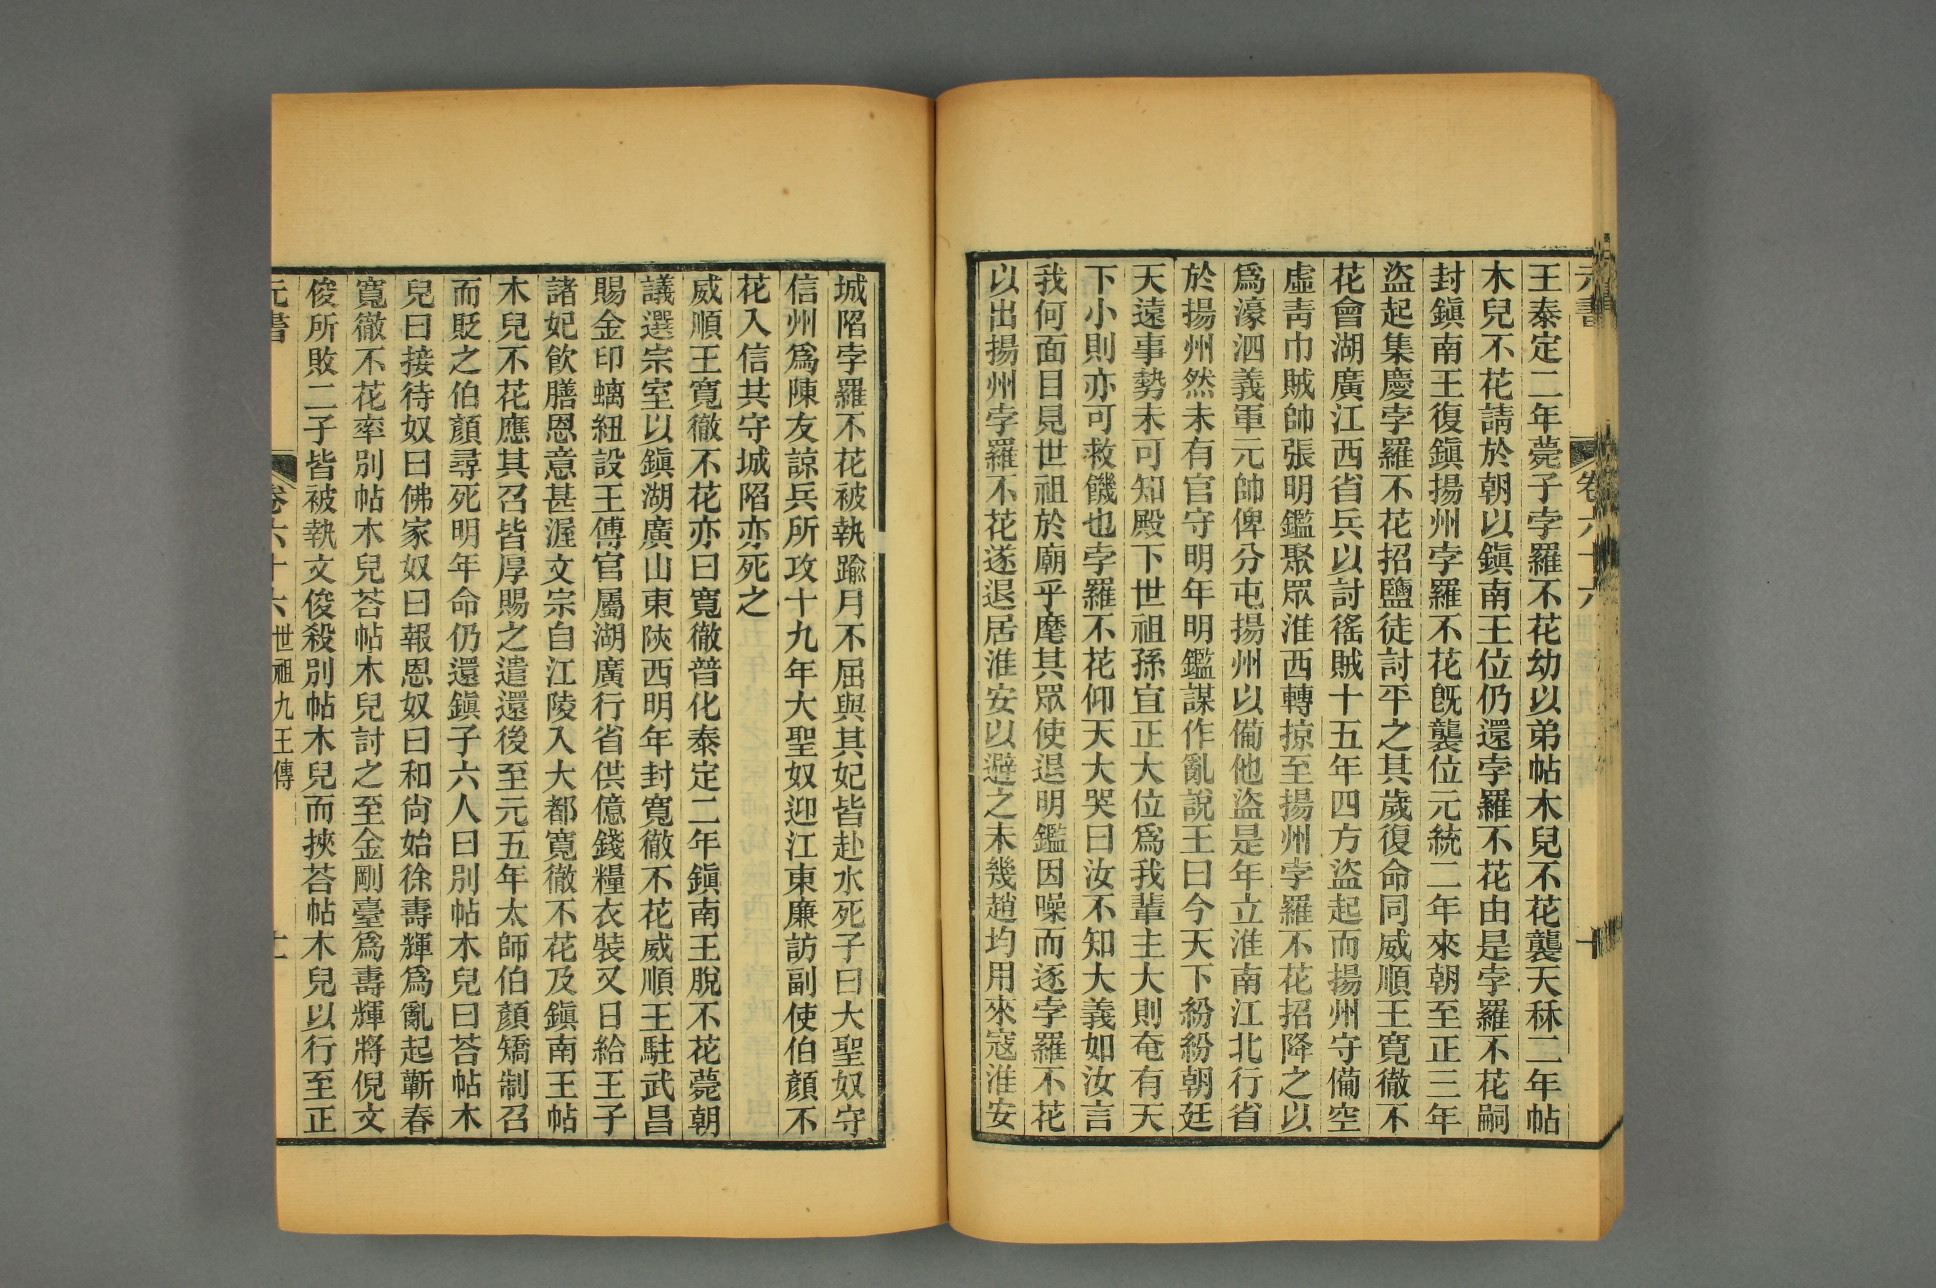 元書 卷六十六 十
王泰定二年薨子孛羅不花幼以弟帖木兒不花襲天秝二年帖
木兒不花請於朝以鎭南王位仍還孛羅不花由是孛羅不花嗣
封鎭南王復鎭揚州孛羅不花旣襲位元統二年來朝至正三年
盜起集慶孛羅不花招鹽徒討平之其歲復命同威順王寬徹不
花會湖廣江西省兵以討徭賊十五年四方盜起而揚州守備空
虛靑巾賊帥張明鑑聚眾淮西轉掠至揚州孛羅不花招降之以
爲濠泗義軍元帥俾分屯揚州以備他盜是年立淮南江北行省
於揚州然未有官守明年明鑑謀作亂說王曰今天下紛紛朝廷
天遠事勢未可知殿下世祖孫宜正大位爲我輩主大則奄有天
下小則亦可救饑也孛羅不花仰天大哭曰汝不知大義如汝言
我何面目見世祖於廟乎麾其眾使退明鑑因噪而逐孛羅不花
以出揚州孛羅不花遂退居淮安以避之未幾趙均用來寇淮安
城陷孛羅不花被執踰月不屈與其妃皆赴水死子曰大聖奴守
信州爲陳友諒兵所攻十九年大聖奴迎江東廉訪副使伯顏不
花入信其守城陷亦死之
威順王寬徹不花亦曰寬徹普化泰定二年鎭南王脫不花薨朝
議選宗室以鎭湖廣山東陜西明年封寬徹不花威順王駐武昌
賜金印螭紐設王傅官屬湖廣行省供億錢糧衣裝又日給王子
諸妃飮膳恩意甚渥文宗自江陵入大都寬徹不花及鎭南王帖
木兒不花應其召皆厚賜之遣還後至元五年太師伯顏矯制召
而貶之伯顏尋死明年命仍還鎭子六人曰別帖木兒曰荅帖木
兒曰接待奴曰佛家奴曰報恩奴曰和尙始徐壽輝爲亂起蘄春
寬徹不花率別帖木兒荅帖木兒討之至金剛臺爲壽輝將倪文
俊所敗二子皆被執文俊殺別帖木兒而挾荅帖木兒以行至正
元書 卷六十六 世祖九王傳